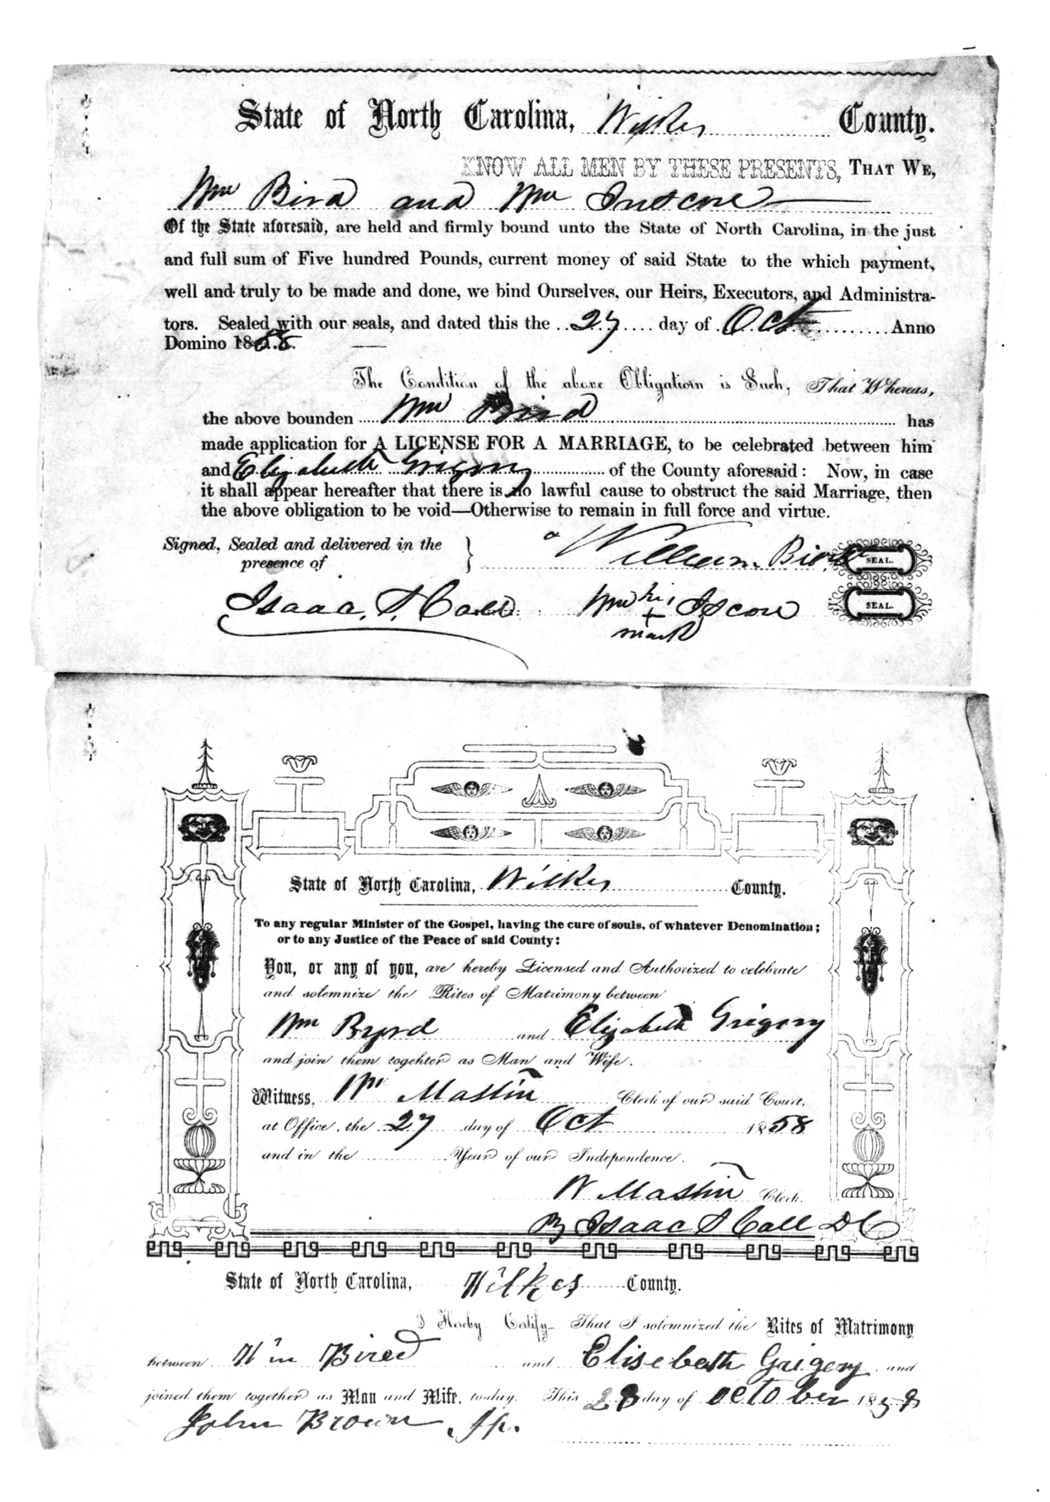 State of North Carolina, Wilkes County.
KNOW ALL MEN BY THESE PRESENTS, THAT WE,
Wm Bird and Wm Inscore
Of the State aforesaid, are held and firmly bound unto the State of North Carolina, in the just
and full sum of Five hundred Pounds, current money of said State to the which payment,
well and truly to be made and done, we bind Ourselves, our Heirs, Executors, and Administra-
tors. Sealed with our seals, and dated this the 27 day of Oct Anno
Domino 1858.
The Condition of the above Obligation is Such, That Whereas,
the above bounden Wm Bird has
made application for A LICENSE FOR A MARRIAGE, to be celebrated between him
and Elizabeth Grigory of the County aforesaid: Now, in case
it shall appear hereafter that there is no lawful cause to obstruct the said Marriage, then
the above obligation to be void—Otherwise to remain in full force and virtue.
Signed, Sealed and delivered in the
presence of
William Bird SEAL.
Isaac S Call Wm his Iscore SEAL.
+
mark
State of North Carolina, Wilkes County.
To any regular Minister of the Gospel, having the cure of souls, of whatever Denomination;
or to any Justice of the Peace of said County:
You, or any of you, are hereby Licensed and Authorized to celebrate
and solemnize the Rites of Matrimony between
Wm Byrd and Elizabeth Grigory
and join them togehter as Man and Wife.
Witness, Wm Mastin Clerk of our said Court,
at Office, the 27 day of Oct 1858
and in the Year of our Independence.
W Mastin Clerk.
By Isaac S Call DC
State of North Carolina, Wilkes County.
I Hereby Certify That I solemnized the Rites of Matrimony
between Wm Bired and Elisebeth Grigery and
joined them together as Man and Wife, to-day. This 28 day of october 1858
John Brown Jp.